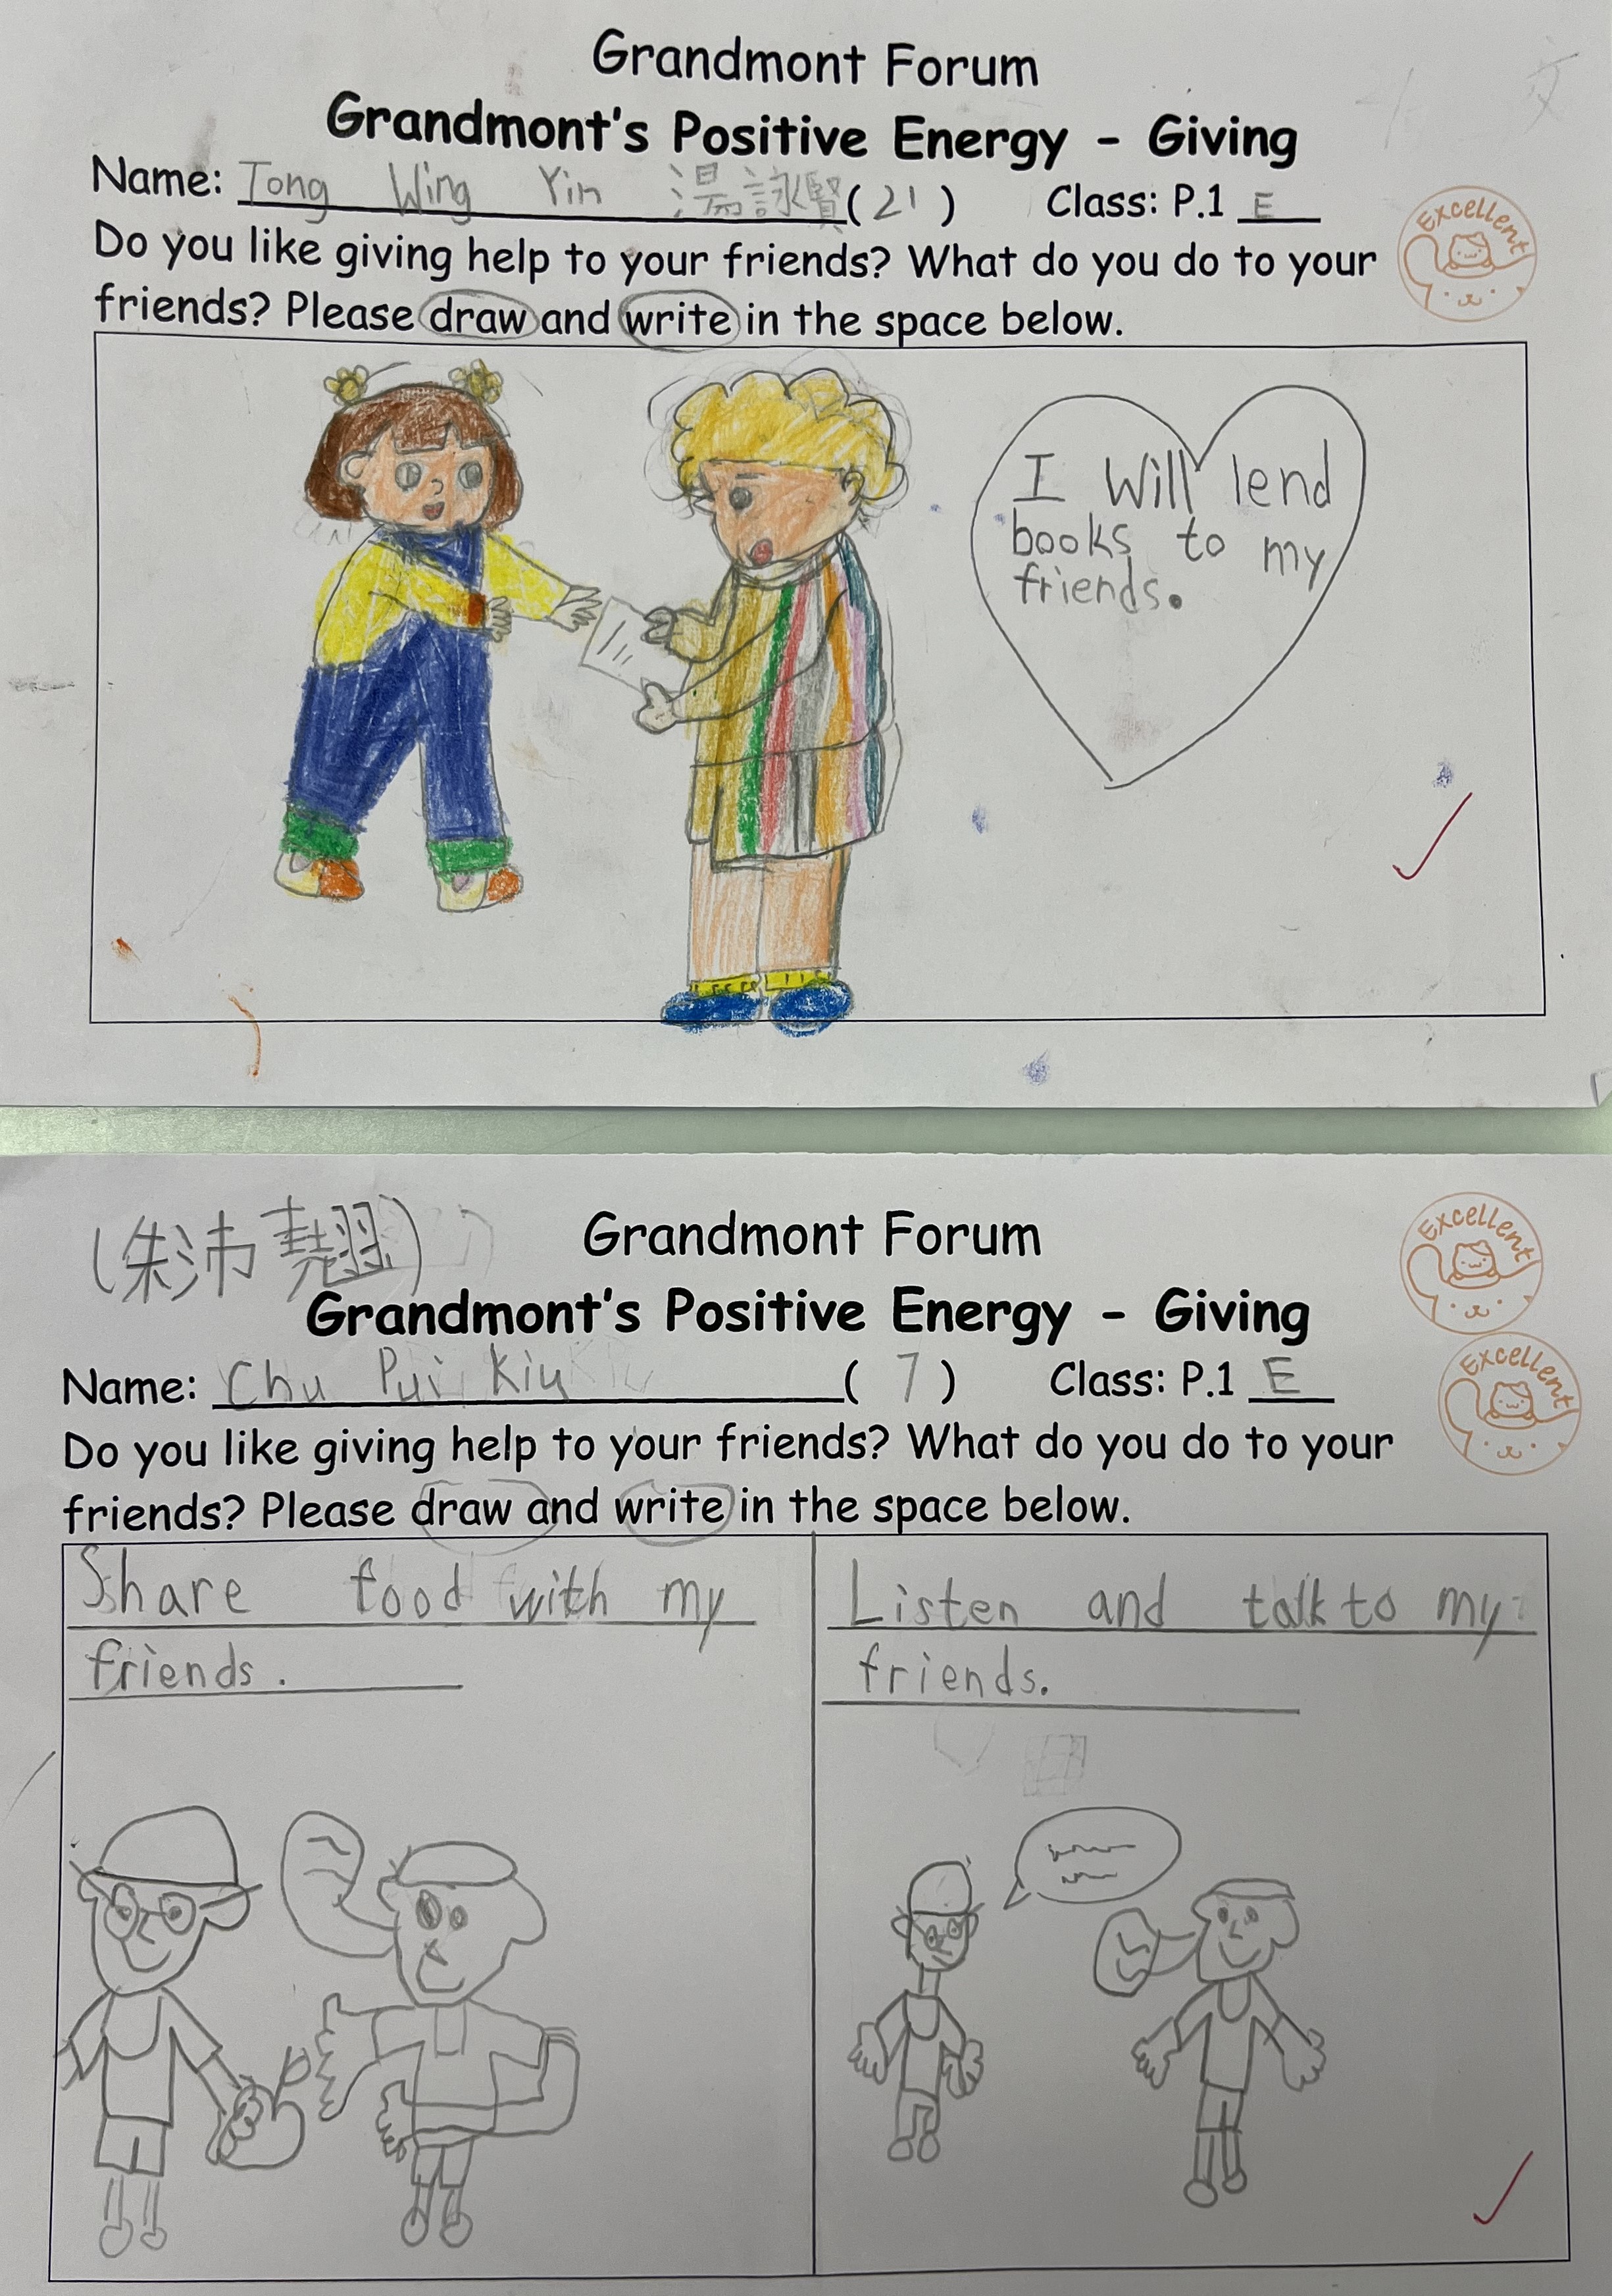 Grandmont Forum
Grandmont's Positive Energy - Giving
Name: Tong Wing Yin 湯詠賢 (21) Class: P.1 E
Excellent
Do you like giving help to your friends? What do you do to your
friends? Please draw and write in the space below.
I Will lend
books to my
friends.
(朱沛翹)
Grandmont Forum
Excellent
Grandmont's Positive Energy - Giving
Name: Chu Pui Kiu (7) Class: P.1 E
Excellent
Do you like giving help to your friends? What do you do to your
friends? Please draw and write in the space below.
Share food with my
friends.
Listen and talk to my
friends.